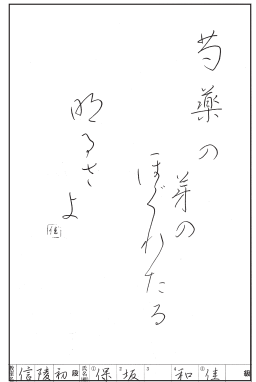 芍薬の
芽の
ほぐれたる
明るさよ
佳
信陵 初 段 ①保 2坂 3 4和 ⑤佳 級